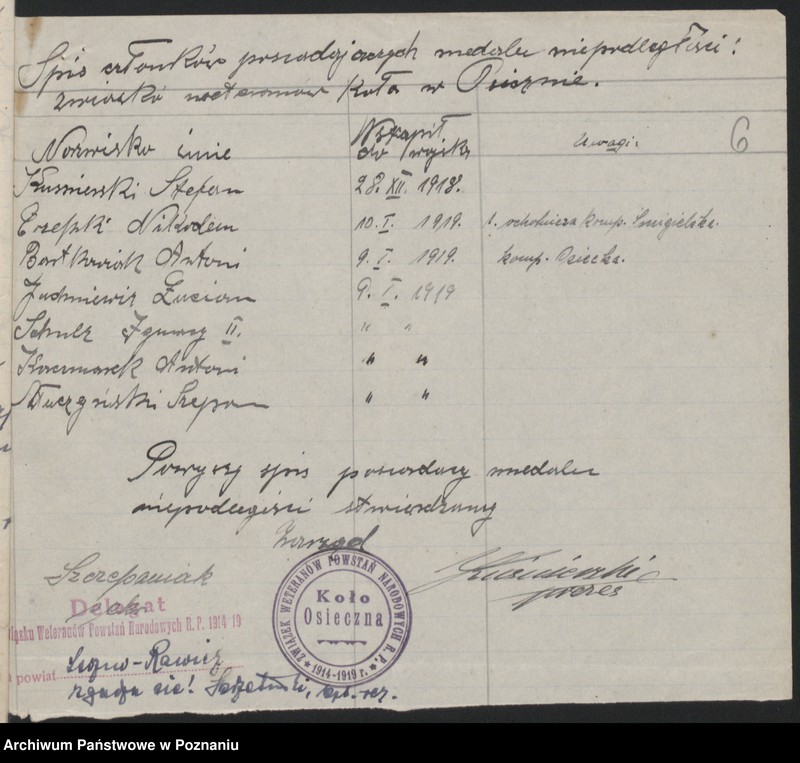 Spis członków posiadających medale niepodległości:
związku weteranów Koła w Osiecznie.
6
Nazwisko imie Wstąpił do wojsk Uwagi:
Kuśnierski Stefan 28. XII. 1918.
Trepki Nikodem 10. I. 1919. 1. ochotnicza komp. Śmigielska.
Bartkowiak Antoni 9. I. 1919. komp. Osiecka.
Łucian 9. I. 1919
Schulz Ignacy II. " "
Kaczmarek Antoni " "
Szczepan " "
Powyższy spis posiadaczy medalu
niepodległości stwierdzamy
Zarząd
Szczepaniak
Kuśnierski
prezes
Delegat
Związku Weteranów Powstań Narodowych R. P. 1914 19
na powiat Leszno-Rawicz
zgadza się!
ZWIĄZEK WETERANÓW POWSTAŃ NARODOWYCH R. P.
1914-1919 r.
Koło
Osieczna
Archiwum Państwowe w Poznaniu